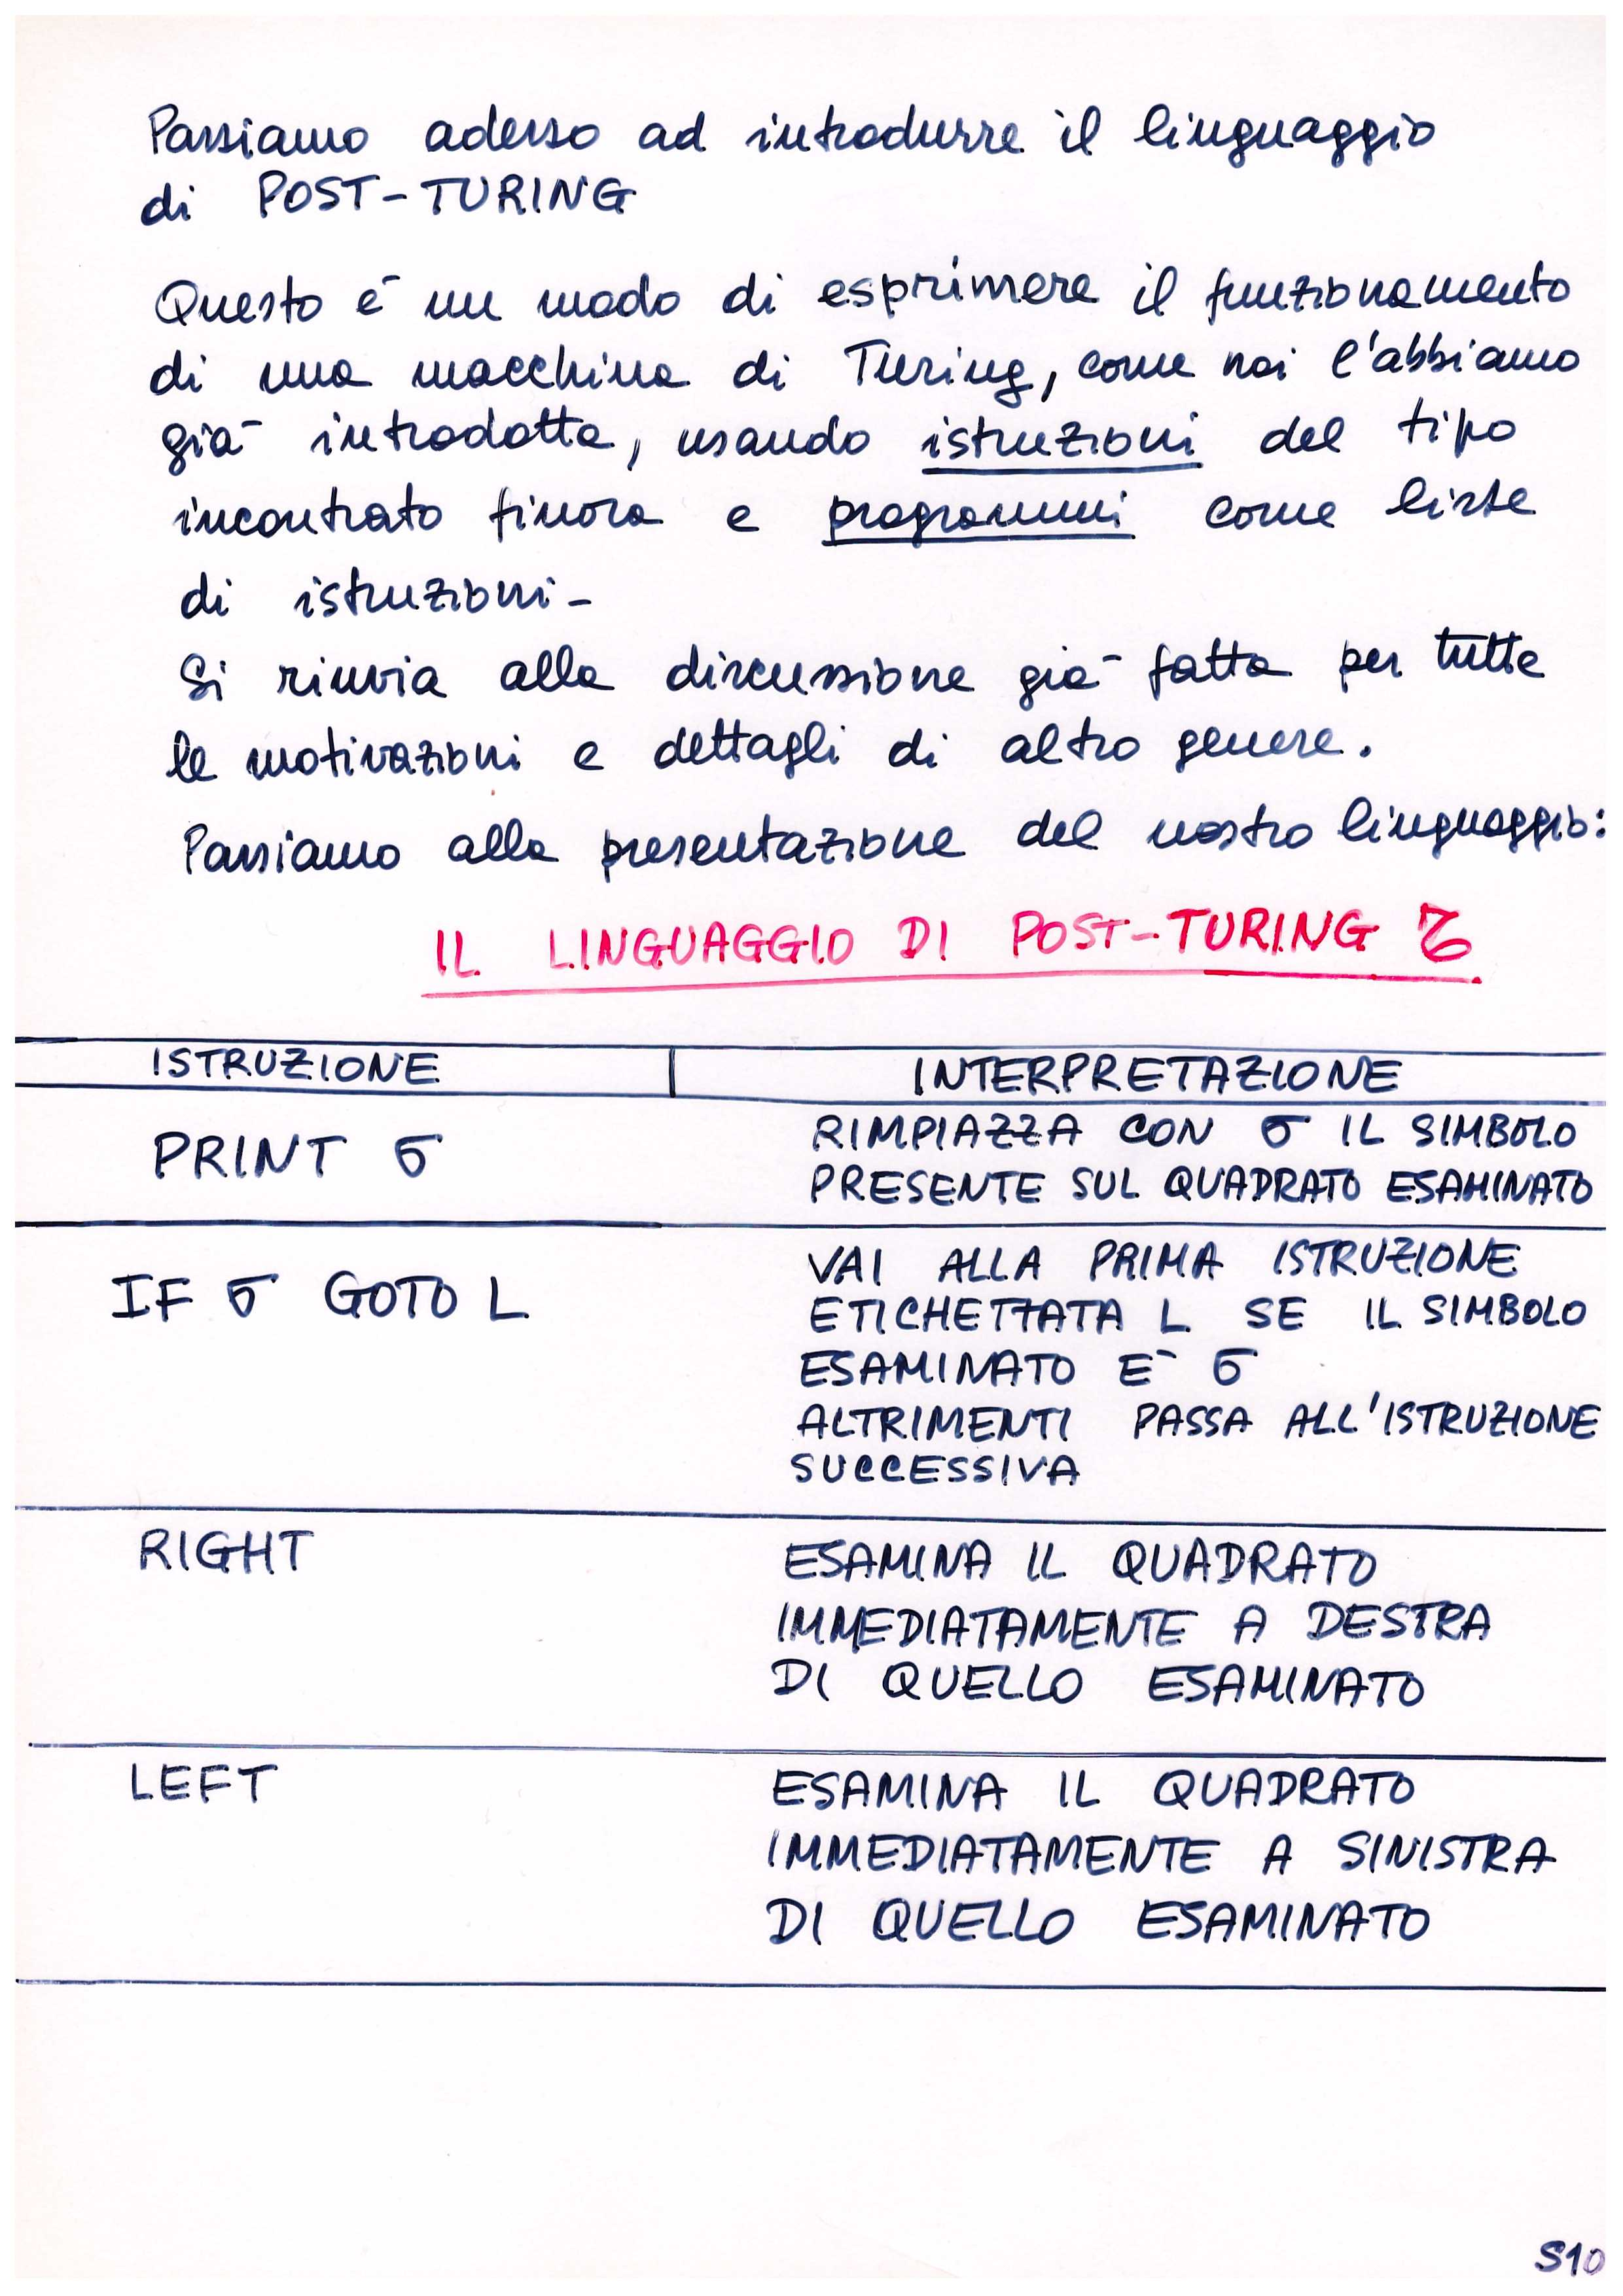 Passiamo adesso ad introdurre il linguaggio
di POST-TURING
Questo é un modo di esprimere il funzionamento
di una macchina di Turing, come noi l'abbiamo
già introdotta, usando istruzioni del tipo
incontrato finora e programmi come liste
di istruzioni-
Si rinvia alla discussione già fatta per tutte
le motivazioni e dettagli di altro genere.
Passiamo alla presentazione del nostro linguaggio:
IL LINGUAGGIO DI POST-TURING 𝒯
ISTRUZIONE INTERPRETAZIONE
PRINT σ
RIMPIAZZA CON σ IL SIMBOLO
PRESENTE SUL QUADRATO ESAMINATO
IF σ GOTO L
VAI ALLA PRIMA ISTRUZIONE
ETICHETTATA L SE IL SIMBOLO
ESAMINATO E` σ
ALTRIMENTI PASSA ALL'ISTRUZIONE
SUCCESSIVA
RIGHT
ESAMINA IL QUADRATO
IMMEDIATAMENTE A DESTRA
DI QUELLO ESAMINATO
LEFT
ESAMINA IL QUADRATO
IMMEDIATAMENTE A SINISTRA
DI QUELLO ESAMINATO
S10